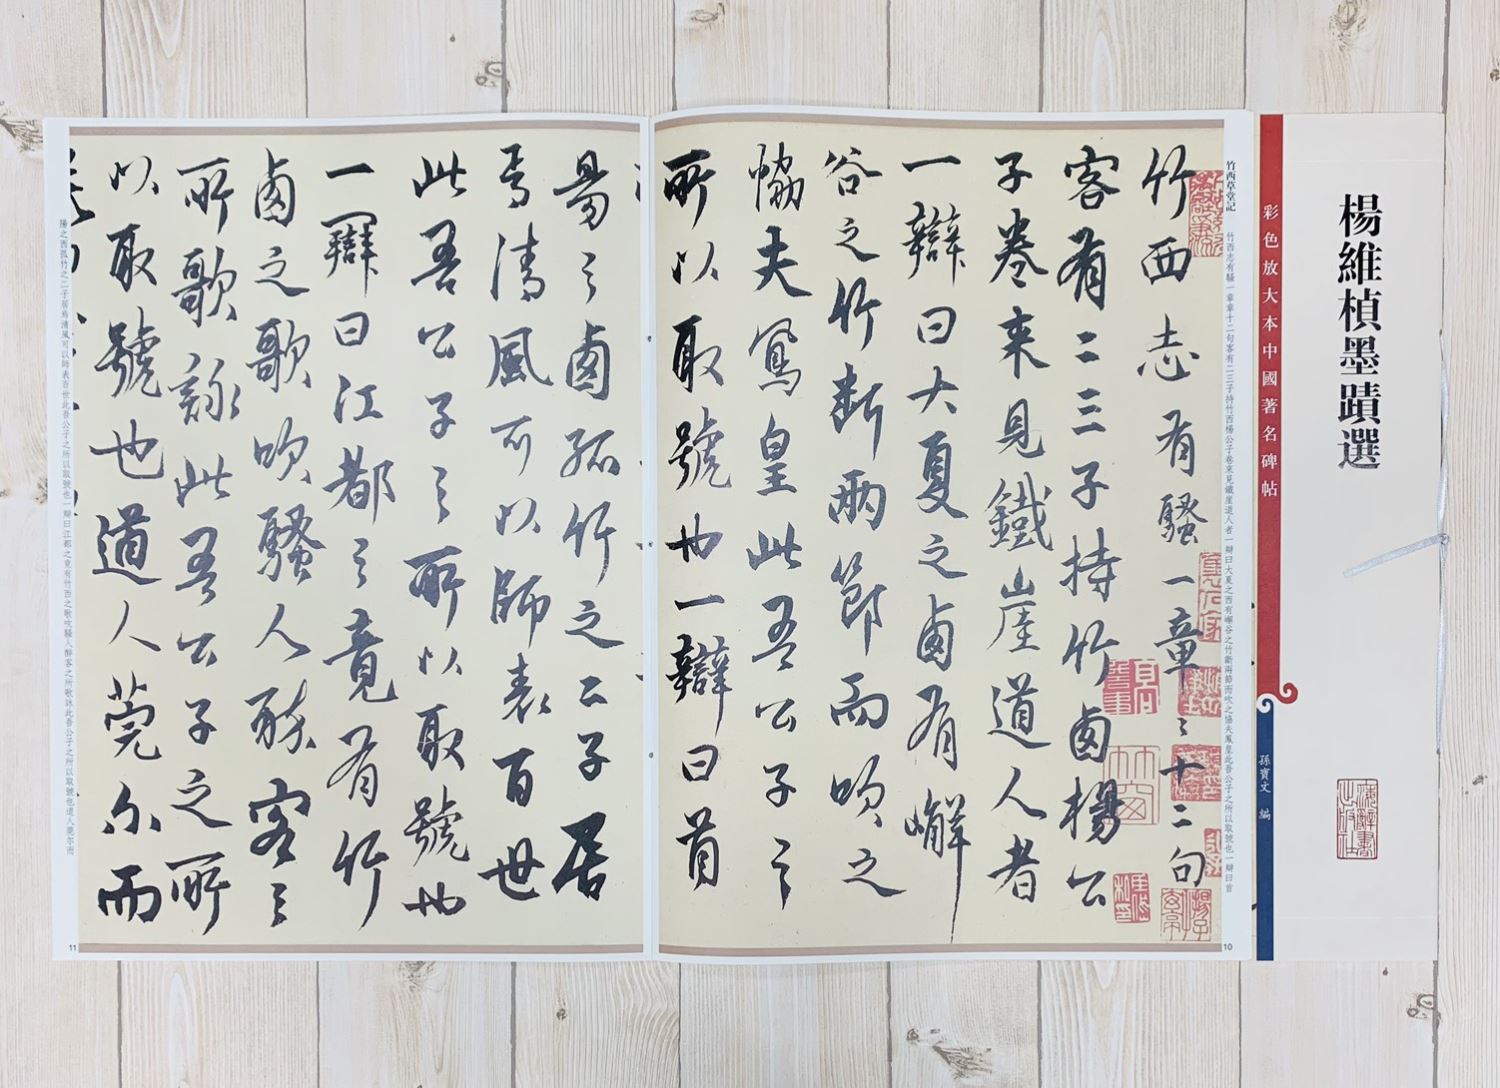 楊維楨墨蹟選
彩色放大本中國著名碑帖
孫寶文 編
竹西草堂記
竹西志有騷一章章十二句客有二三子持竹西楊公子卷來見鐵崖道人者一辯曰大夏之西有嶰谷之竹斷兩節而吹之恊夫鳳皇此吾公子之所以取號也一辯曰首
竹西志有騷一章〻十二句
客有二三子持竹西楊公
子卷来見鐵崖道人者
一辯曰大夏之西有嶰
谷之竹斷兩節而吹之
恊夫鳳皇此吾公子之
所以取號也一辯曰首
10
陽之西孤竹之二子居
焉清風可以師表百世
此吾公子之所以取號也
一辯曰江都之竟有竹
西之歌吹騷人醉客之
所歌詠此吾公子之所
以取號也道人莞尔而
陽之西孤竹之二子居焉清風可以師表百世此吾公子之所以取號也一辯曰江都之竟有竹西之歌吹騷人醉客之所歌詠此吾公子之所以取號也道人莞尔而
11